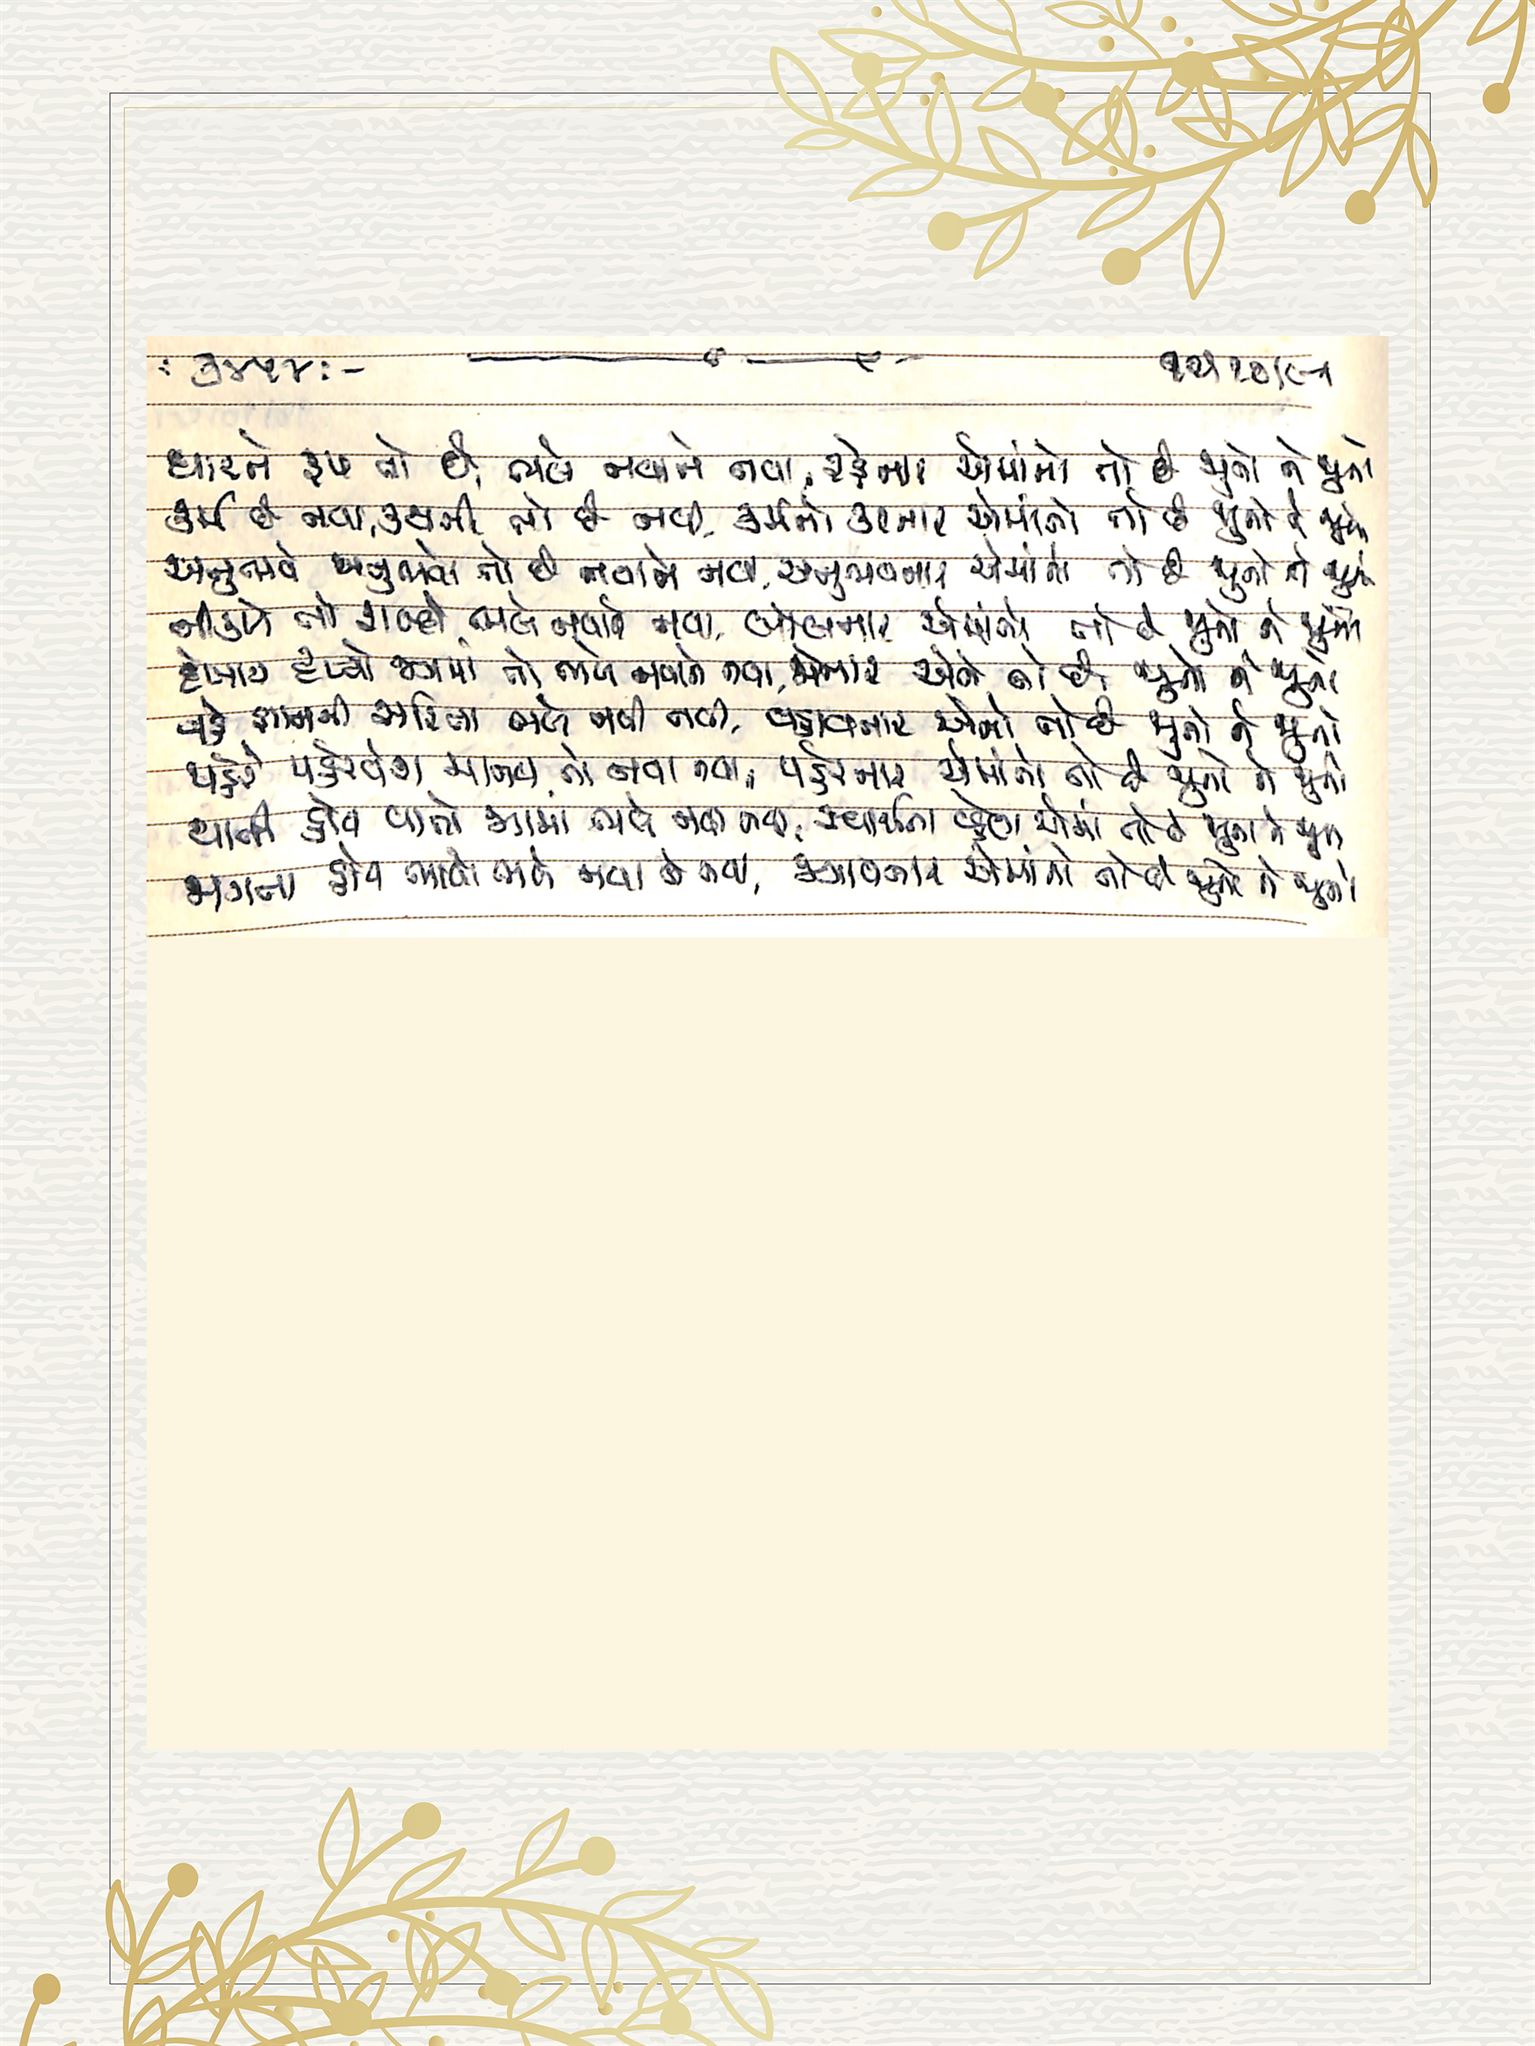 : ૩૪૫૮ : -
ધારતે રૂપ તો છે, ભલે નવાને નવા, રહેનાર એમાંનો તો છે જુનો ને જુનો
કર્મ છે નવા, કક્ષની તો છે નવી, કર્મનો કરનાર એમાંનો તો છે જુનો ને જુનો
અનુભવે અનુભવો તો છે નવાને નવા, અનુભવનાર એમાંનો તો છે જુનો ને જુનો
નીકળે તો શબ્દો ભલે નવાને નવા, બોલનાર એમાંનો તો છે જુનો ને જુનો
દેખાય દૃશ્યો જગમાં તો ભલે નવાને નવા, જોનાર એને તો છે જુનો ને જુનો
વહે જ્ઞાનની સરિતા ભલે નવી નવી, વહાવનાર એનો તો છે જુનો ને જુનો
પહેરે પહેરવેશ માનવ તો નવા નવા, પહેરનાર એમાંનો તો છે જુનો ને જુનો
થાતી હોય વાતો જગમાં ભલે નવી નવી, સ્વાર્થના એમાં તો છે જુના ને જુના
મનના હોય ભાવો ભલે નવા કે નવા, જગાવનાર એમાંનો તો છે જુનો ને જુનો